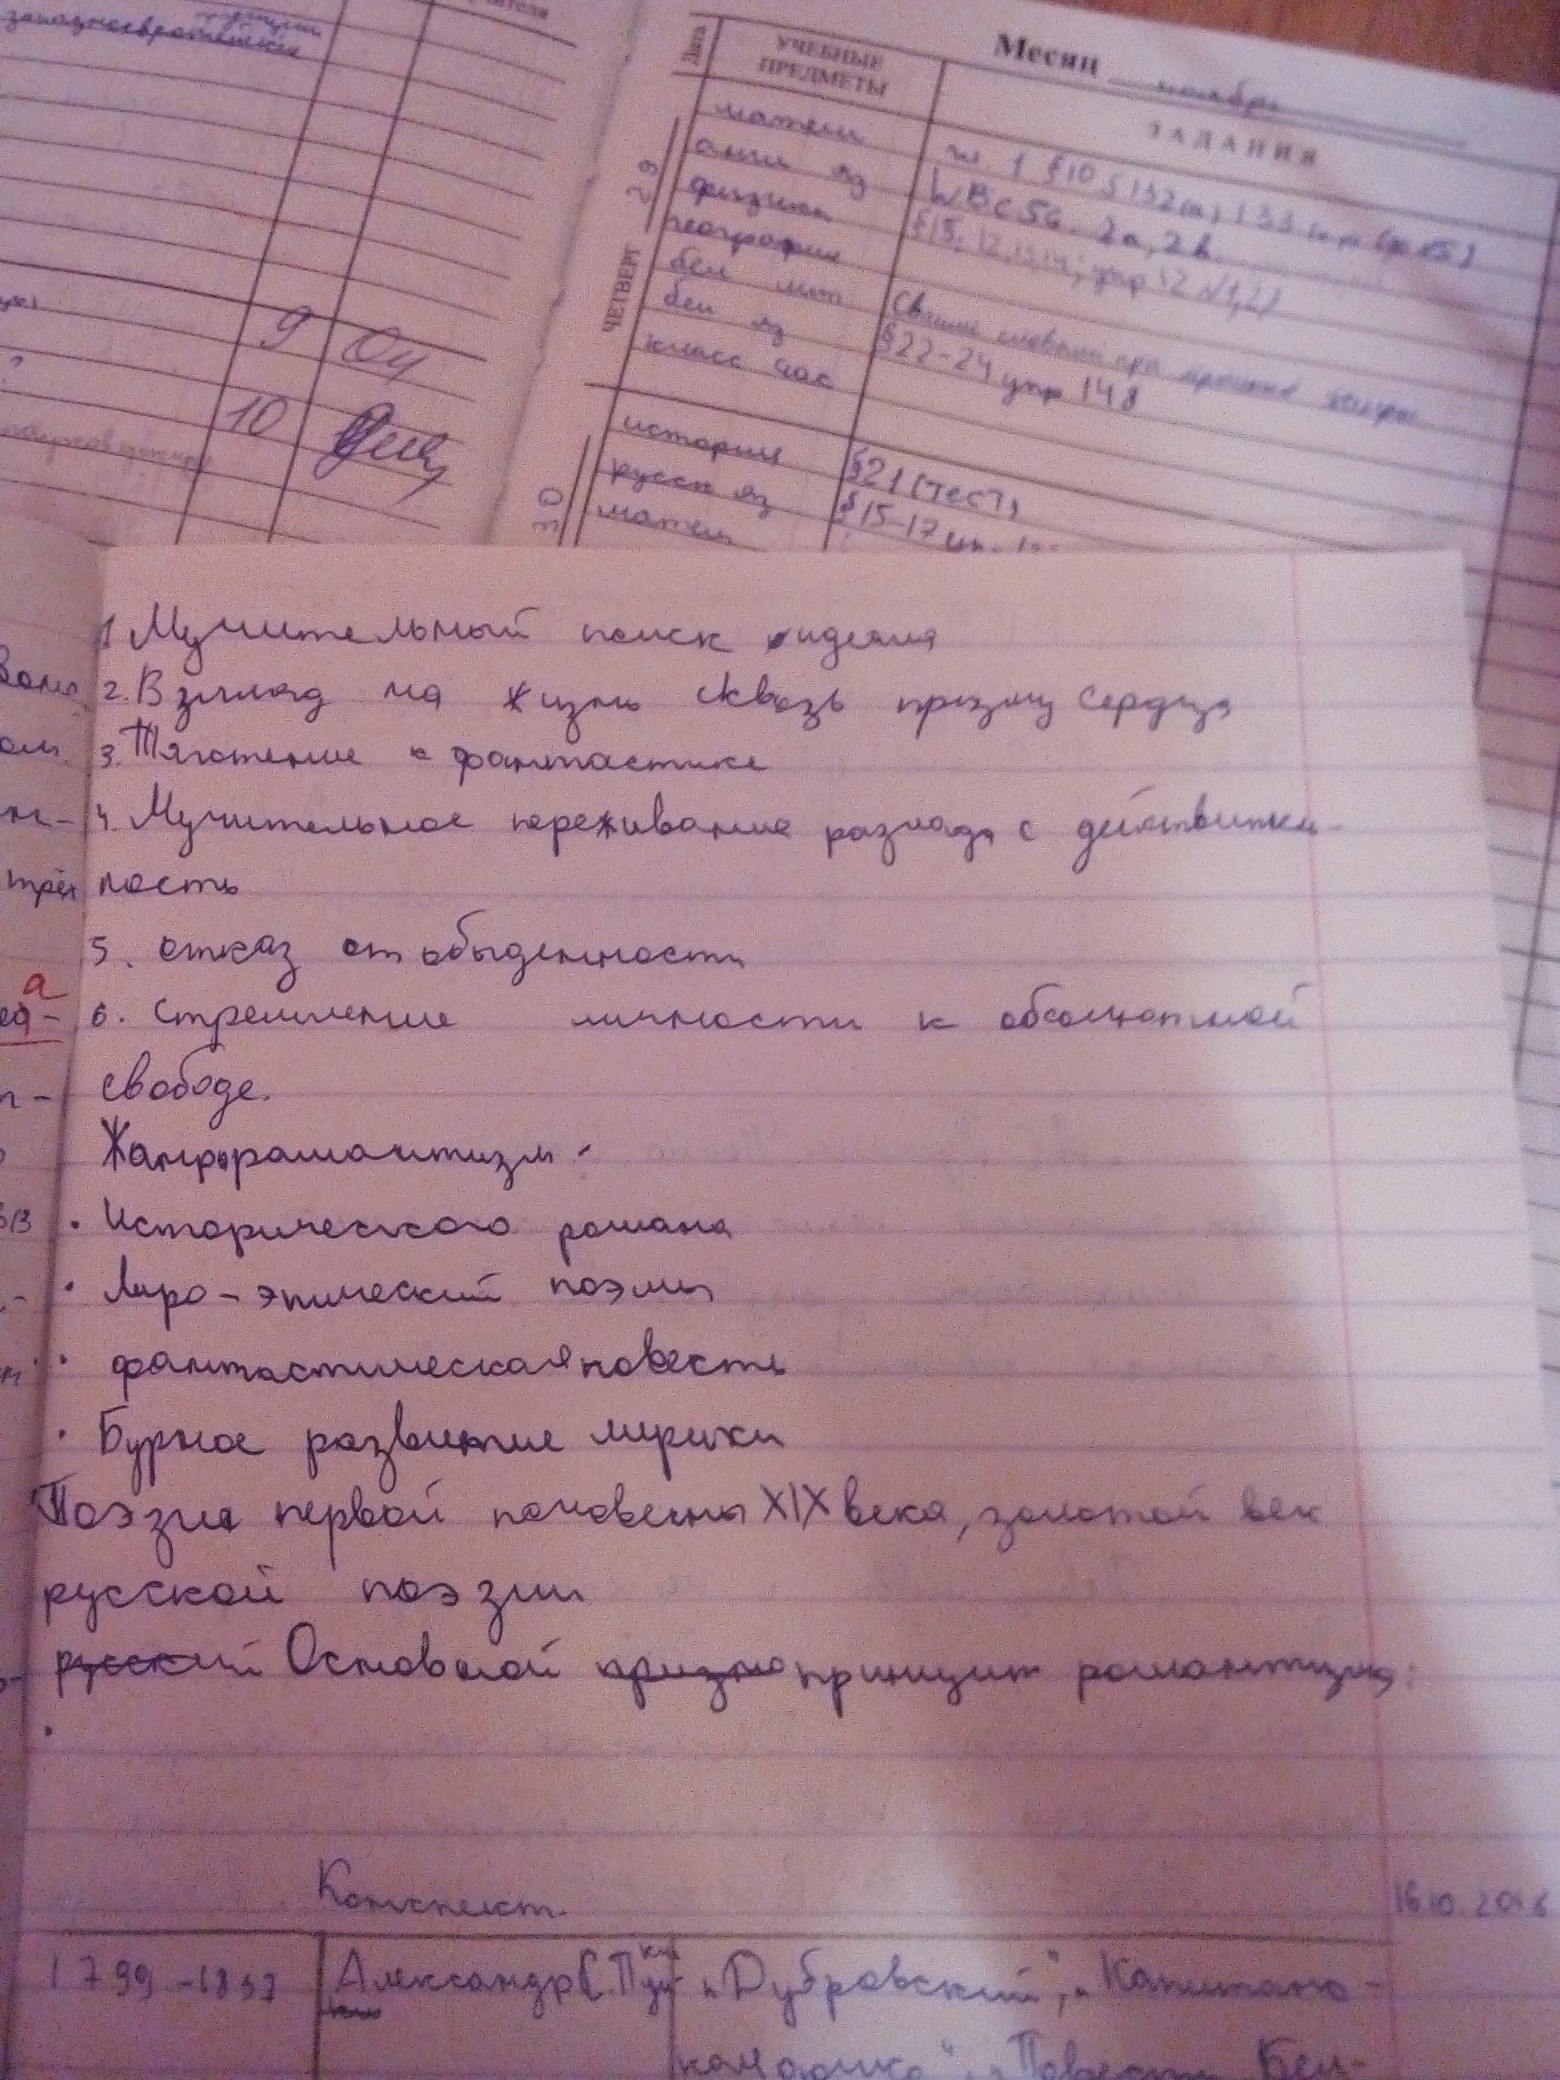 западноевропейские
Месяц ноябрь
Дата
УЧЕБНЫЕ
ПРЕДМЕТЫ
ЗАДАНИЯ
ЧЕТВЕРГ
29
матем
англ яз
WBc56. 2a, 2b
физика
география
бел лит
бел яз
§22-24 упр 148
класс час
30
история
§21 (тест)
русск яз
§15-17
матем
9
10
1 Мучительный поиск идеала
2. Взгляд на жизнь сквозь призму сердца
3. Тяготение к фантастике
4. Мучительное переживание разлада с действитель-
ность
5. отказ от обыденности
6. стремление личности к абсолютной
свободе.
Жанры романтизм:
• Исторического романа
• Лиро-эпический поэмы
• фантастическая повесть
• Бурное развитие лирики
Поэзия первой половины XIX века, золотой век
русской поэзии
русский Основной призна принцип романтизма:
•
Конспект.
16.10.2018
1799-1837
Александр С. Пушкин
„Дубровский", „Капитанс-
„Повести Бел-